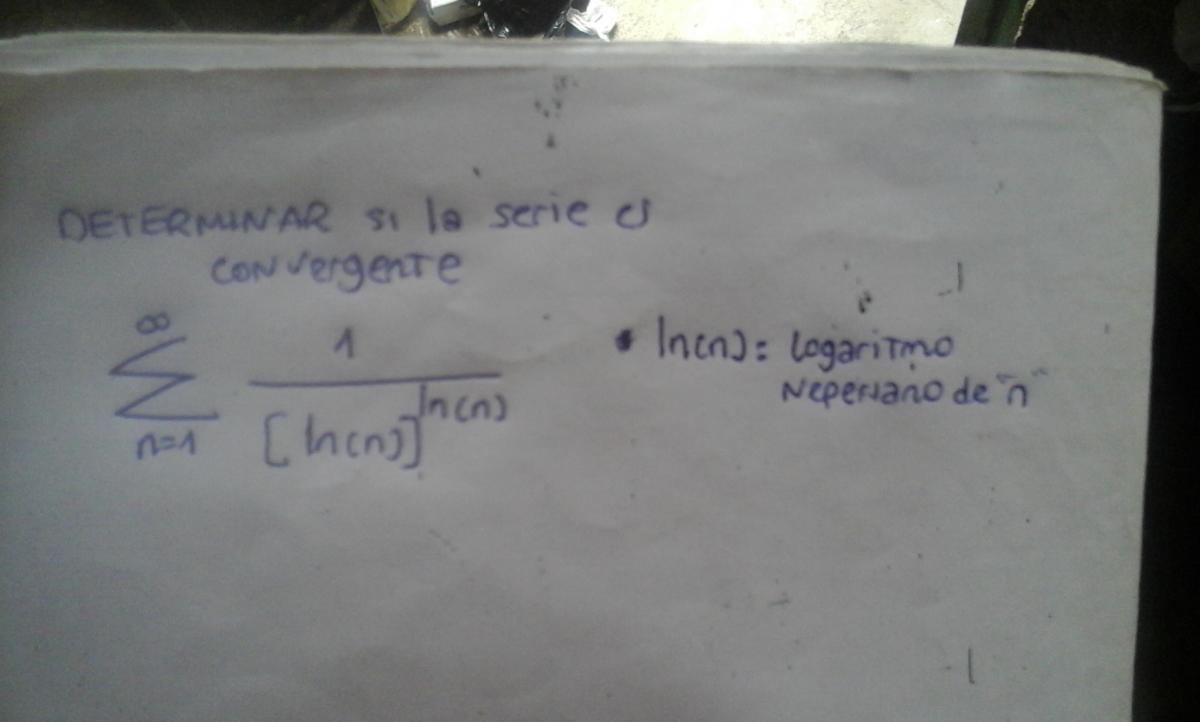 DETERMINAR si la serie es
convergente
∞
∑ 1 / [ln(n)]^ln(n)
n=1
• ln(n): logaritmo
Neperiano de "n"